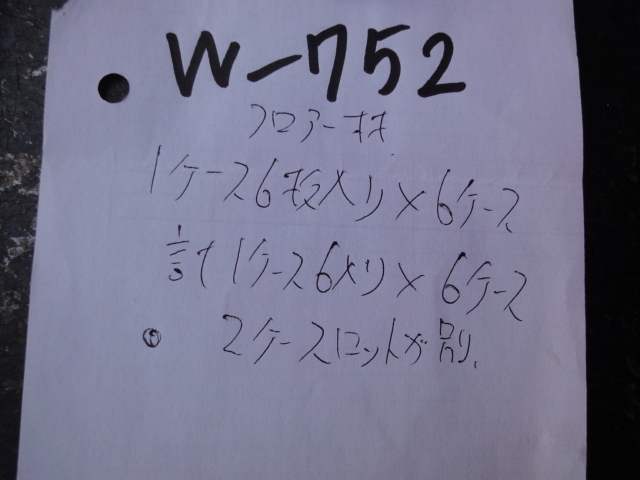 W-752
フロアー材
1ケース6枚入り×6ケース
計1ケース6入り×6ケース
◎ 2ケースロットが別